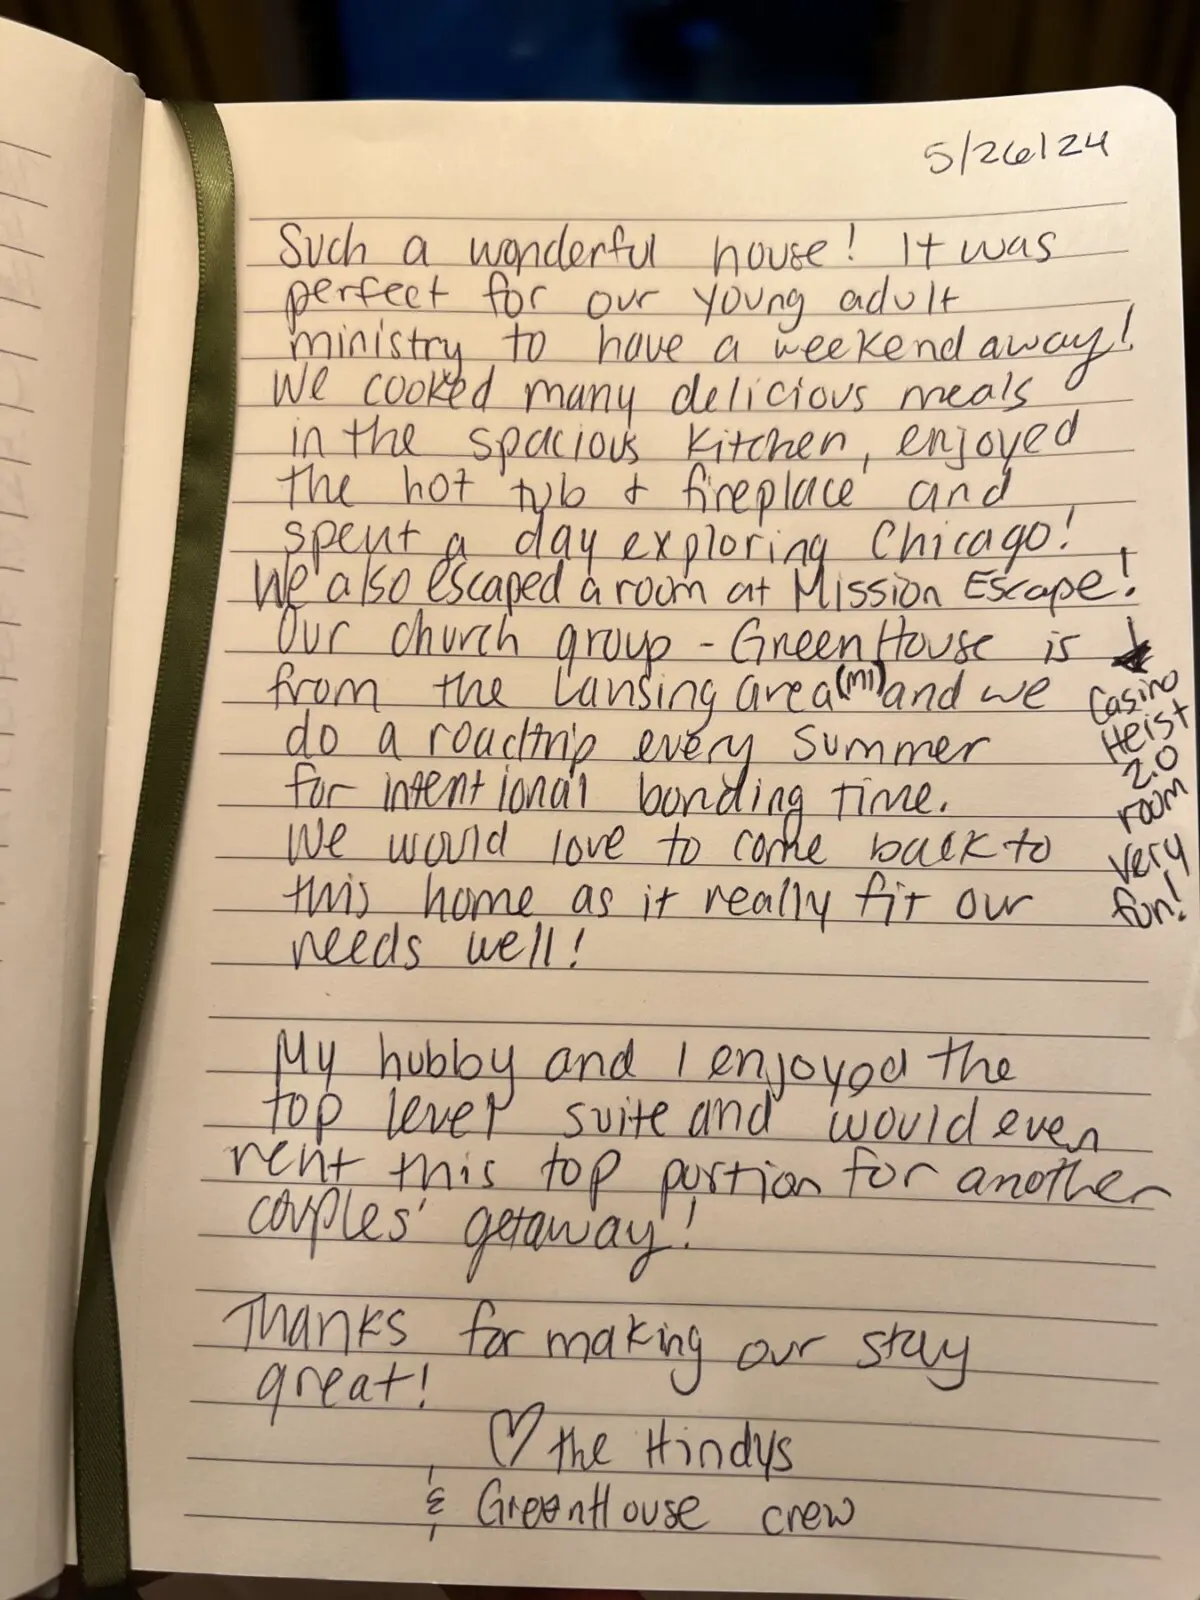 5/26/24
Such a wonderful house! It was
perfect for our young adult
ministry to have a weekend away!
We cooked many delicious meals
in the spacious kitchen, enjoyed
the hot tub & fireplace and
spent a day exploring Chicago!
We also escaped a room at Mission Escape!
Our church group - GreenHouse is
from the Lansing area (MI) and we
do a roadtrip every summer
for intentional bonding time.
We would love to come back to
this home as it really fit our
needs well!
Casino
Heist
2.0
room
very
fun!
My hubby and I enjoyed the
top level suite and would even
rent this top portion for another
couples' getaway!
Thanks for making our stay
great!
♡ the Hindys
& GreenHouse crew